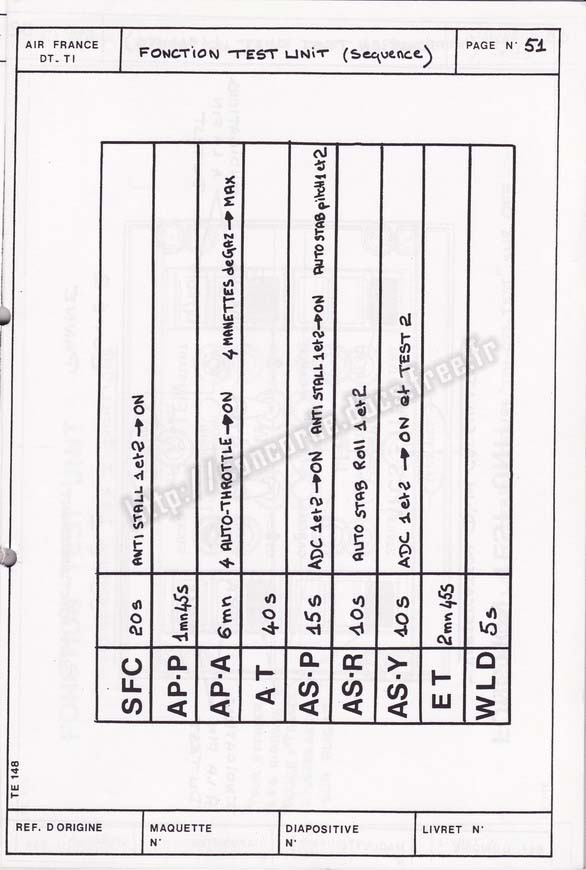 AIR FRANCE
DT. TI
FONCTION TEST UNIT (Sequence)
PAGE N° 51
SFC 20s ANTI STALL 1et2→ON
AP.P 1mn45s
AP.A 6mn 4 AUTO-THROTTLE→ON 4 MANETTES de GAZ→MAX
AT 40s
AS.P 15s ADC 1et2→ON ANTI STALL 1et2→ON AUTO STAB pitch 1et2
AS.R 10s AUTO STAB Roll 1et2
AS.Y 10s ADC 1et2→ON et TEST 2
ET 2mn45s
WLD 5s
http://concorde.docs.free.fr
TE 148
REF. D'ORIGINE
MAQUETTE
N°
DIAPOSITIVE
N°
LIVRET N°